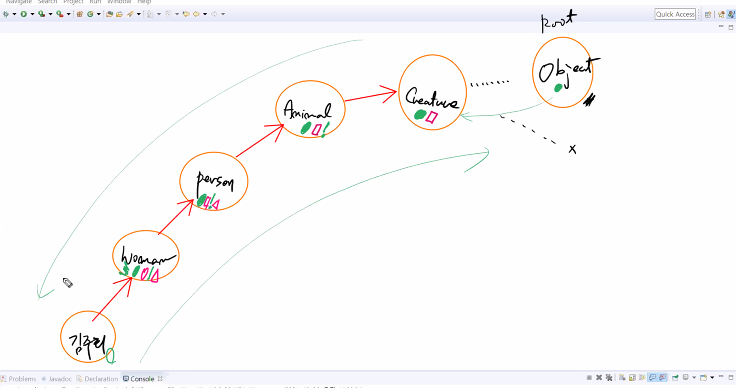 Navigate Search Project Run Window Help
Quick Access
root
Object
Creature
Animal
person
woman
x
Problems Javadoc Declaration Console